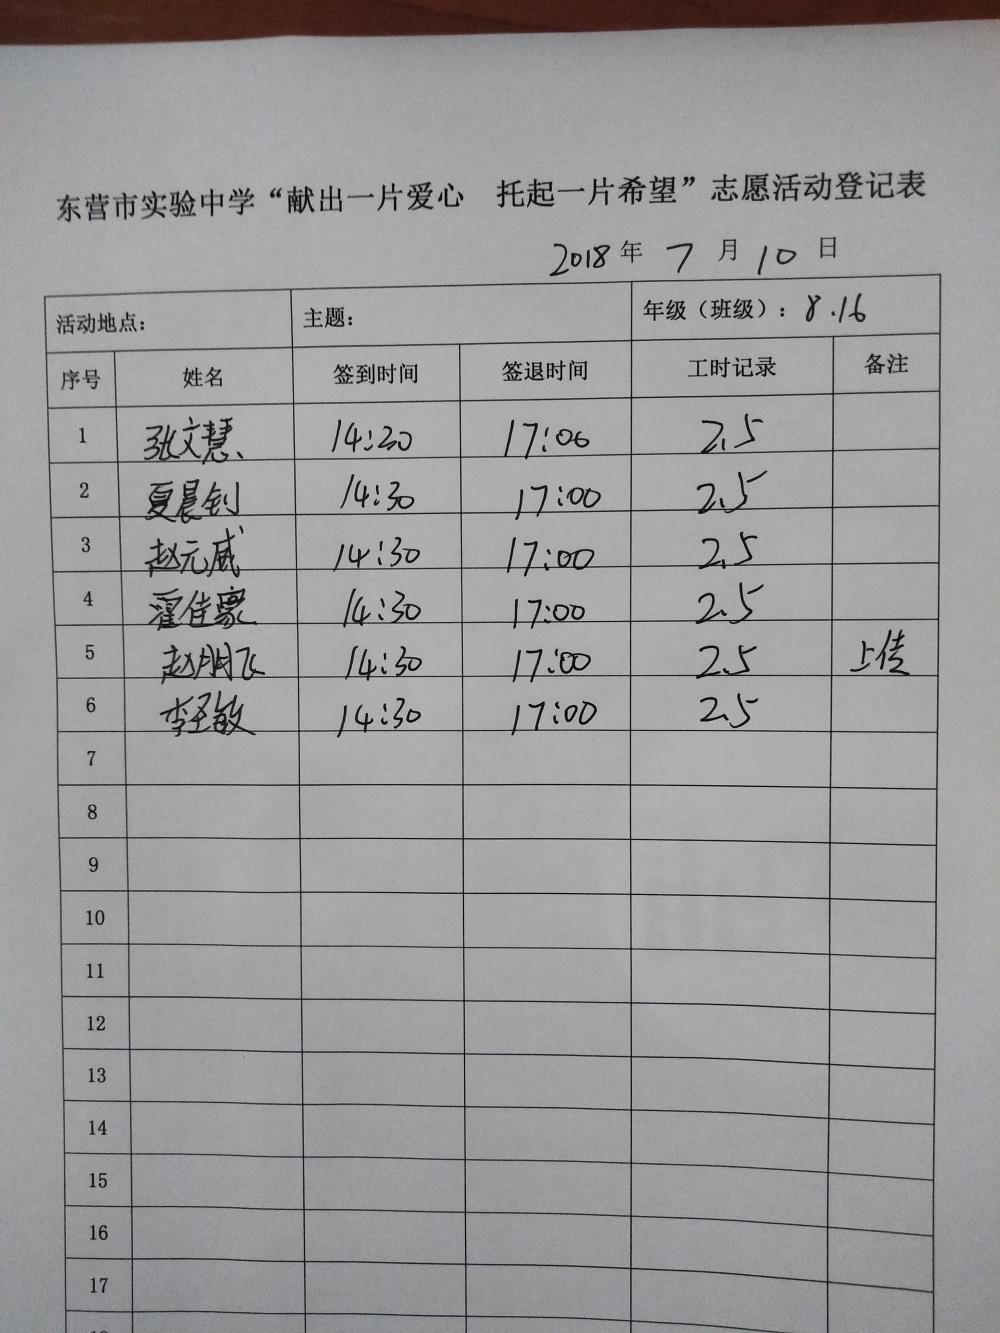 东营市实验中学“献出一片爱心 托起一片希望”志愿活动登记表
2018 年 7 月 10 日
活动地点: 主题: 年级（班级）: 8.16
序号 姓名 签到时间 签退时间 工时记录 备注
1 张文慧 14:20 17:00 2.5
2 夏晨钊 14:30 17:00 2.5
3 赵元威 14:30 17:00 2.5
4 霍佳豪 14:30 17:00 2.5
5 赵朋飞 14:30 17:00 2.5 上传
6 李圣敏 14:30 17:00 2.5
7
8
9
10
11
12
13
14
15
16
17